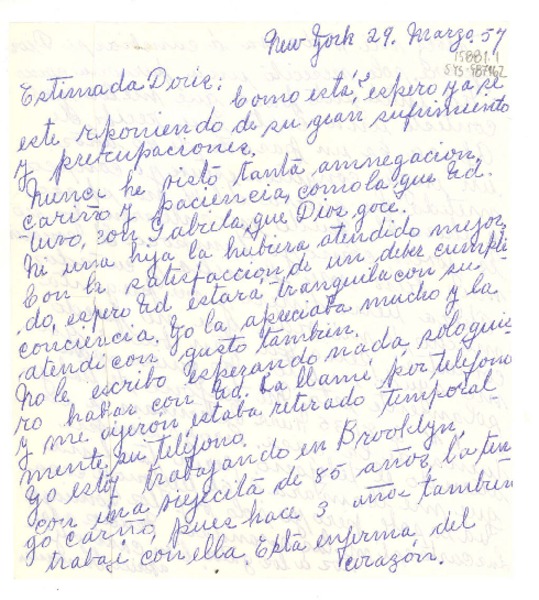 New York 29. Marzo, 57
15881.1
SYS-987962
Estimada Doris:
Como está, espero ya se
esté reponiendo de su gran sufrimiento
y preocupaciones.
Nunca he visto tanta amnegacion,
cariño y paciencia, como la que Ud.
tuvo, con Gabriela, que Dios goce.
Ni una hija la hubiera atendido mejor,
Con la satisfaccion de un deber cumpli
do, espero Ud. estará, tranquila con su
conciencia. Yo la apreciaba mucho y la
atendi con gusto tambien.
No le escribo esperando nada solo quie
ro hablar con Ud. La llamé por teléfono
y me dijeron, estaba retirado temporal-
mente. su teléfono.
Yo estoy trabajando en Brooklyn,
con una viejecita de 85 años, la ten
go cariño, pues hace 3 años tambien
trabajé con ella. Está enferma del
corazón.